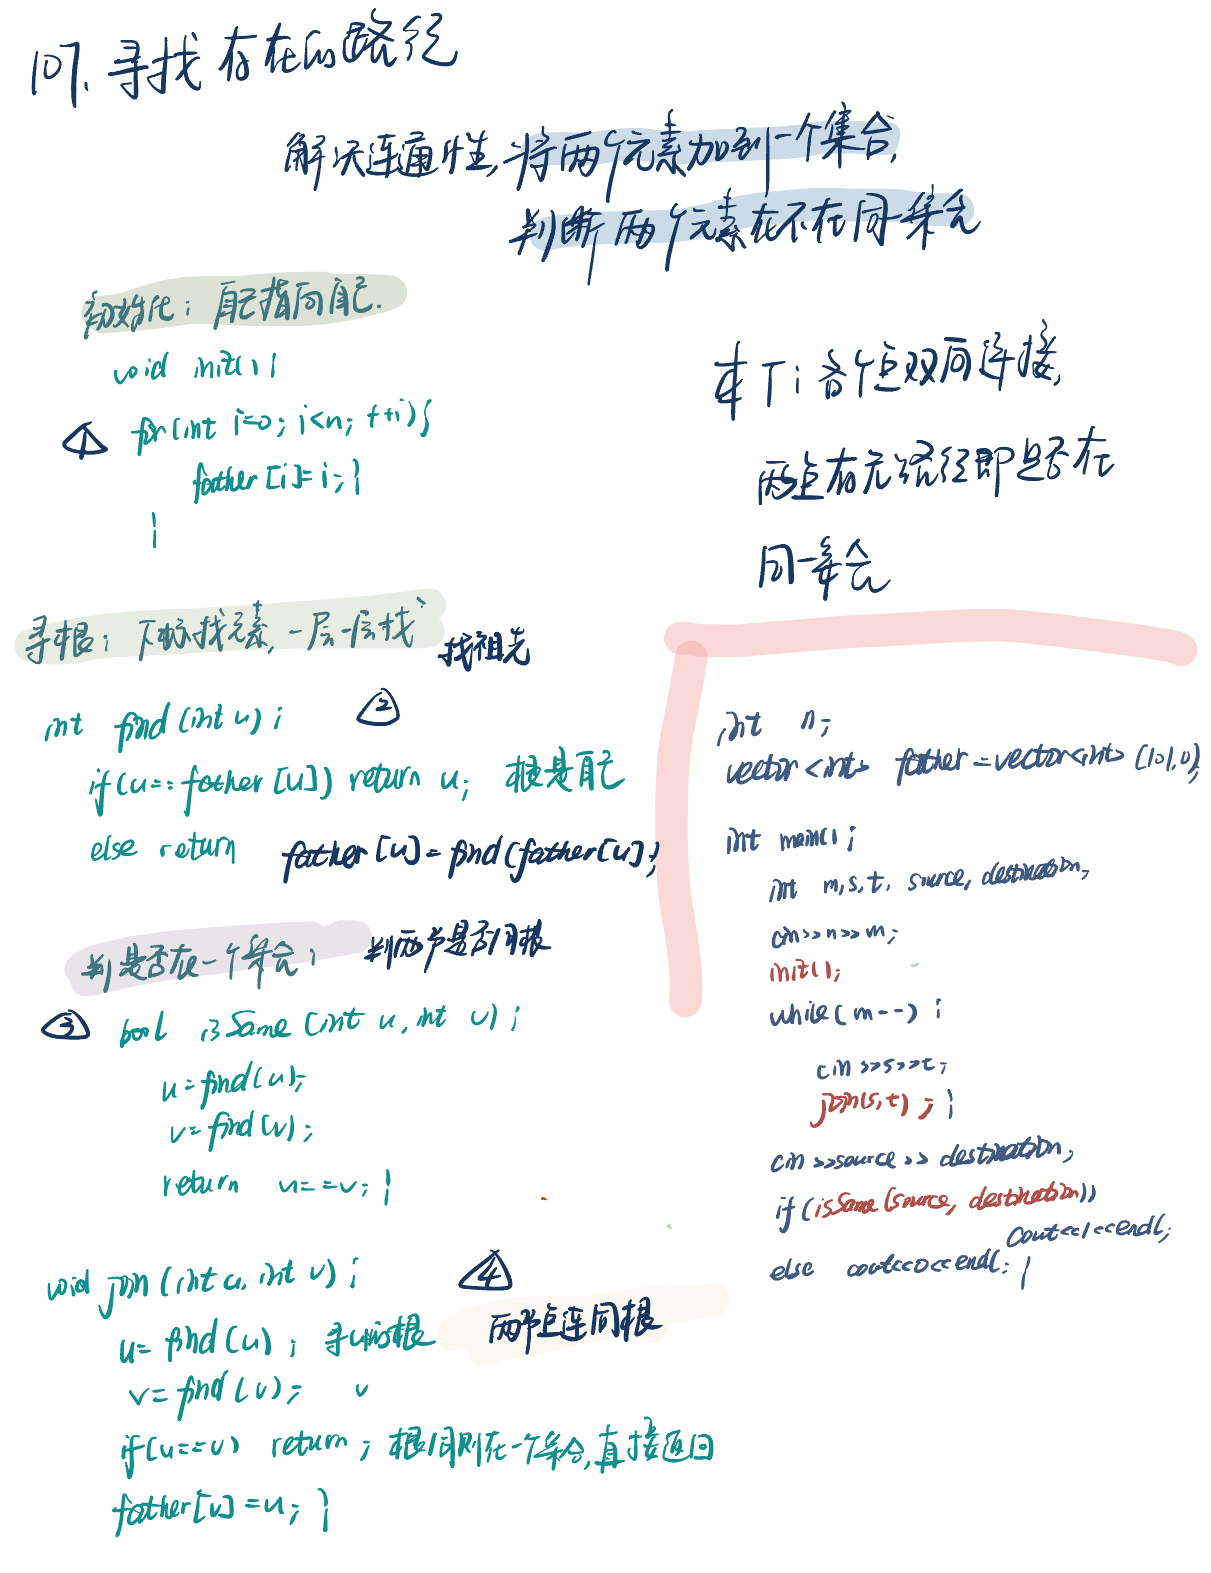 107. 寻找存在的路径
解决连通性,将两个元素加到一个集合,
判断两个元素在不在同一集合
初始化: 自己指向自己.
void init() {
① for(int i=0; i<n; ++i){
father[i]=i; }
}
本T: 各个点双向连接,
两点有无路径即是否在
同一集合
寻根: 下标找元素, 一层一层找 找祖先
int find(int u) { ②
if(u==father[u]) return u; 根是自己
else return father[u]=find(father[u]);
判是否在一个集合: 判两节点是否同根
③ bool isSame(int u, int v) {
u=find(u);
v=find(v);
return u==v; }
void join(int u, int v) { ④
两节点连同根
u=find(u); 寻u的根
v=find(v); v
if(u==v) return; 根同则在一个集合,直接返回
father[v]=u; }
int n;
vector<int> father=vector<int>(101,0);
int main() {
int m,s,t, source, destination;
cin>>n>>m;
init();
while(m--) {
cin>>s>>t;
join(s,t); }
cin>>source>>destination;
if(isSame(source, destination))
cout<<1<<endl;
else cout<<0<<endl; }